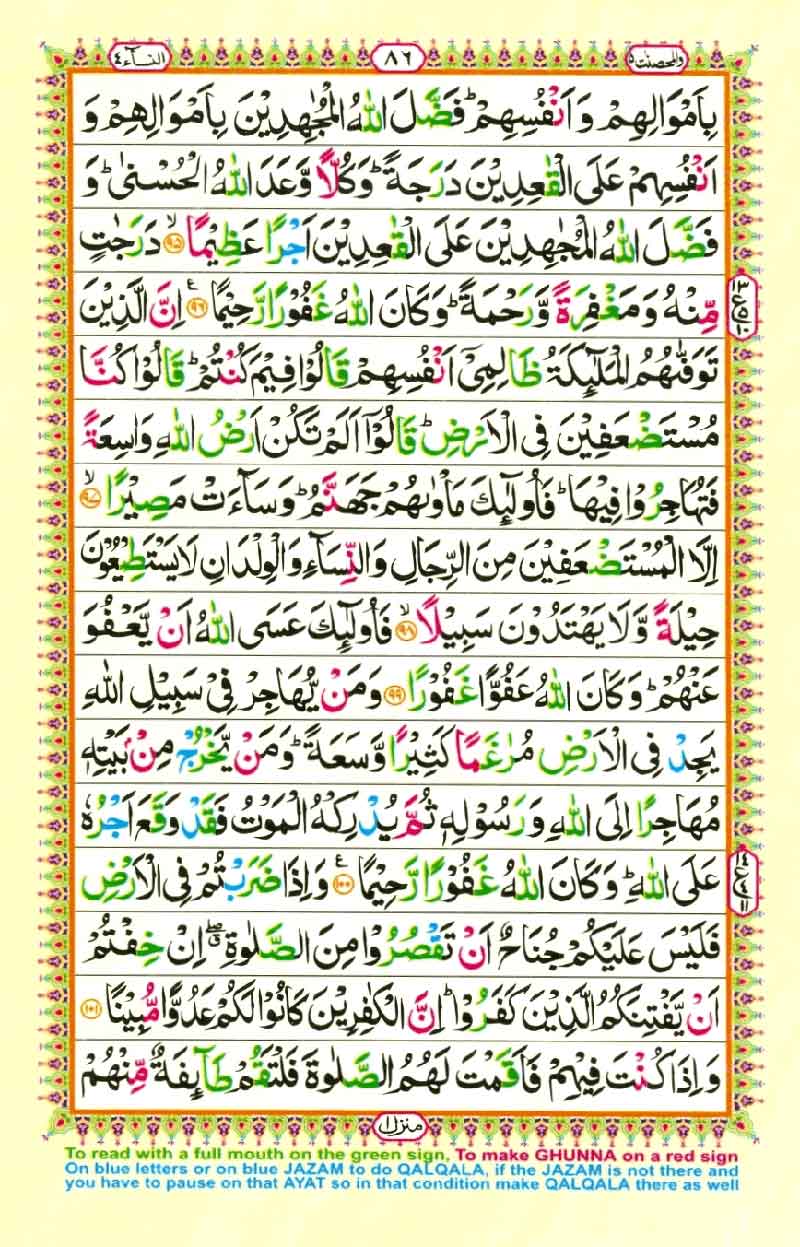 النسآء ٤
٨٦
والمحصنت ٥
بِاَمْوَالِهِمْ وَاَنْفُسِهِمْ ؕ فَضَّلَ اللّٰهُ الْمُجٰهِدِيْنَ بِاَمْوَالِهِمْ وَ
اَنْفُسِهِمْ عَلَى الْقٰعِدِيْنَ دَرَجَةً ؕ وَكُلًّا وَّعَدَ اللّٰهُ الْحُسْنٰى ؕ وَ
فَضَّلَ اللّٰهُ الْمُجٰهِدِيْنَ عَلَى الْقٰعِدِيْنَ اَجْرًا عَظِيْمًا ۙ﴿٩٥﴾ دَرَجٰتٍ
مِّنْهُ وَمَغْفِرَةً وَّرَحْمَةً ؕ وَكَانَ اللّٰهُ غَفُوْرًا رَّحِيْمًا ﴿٩٦﴾ ع اِنَّ الَّذِيْنَ
تَوَفّٰىهُمُ الْمَلٰٓئِكَةُ ظَالِمِيْۤ اَنْفُسِهِمْ قَالُوْا فِيْمَ كُنْتُمْ ؕ قَالُوْا كُنَّا
مُسْتَضْعَفِيْنَ فِى الْاَرْضِ ؕ قَالُوْۤا اَلَمْ تَكُنْ اَرْضُ اللّٰهِ وَاسِعَةً
فَتُهَاجِرُوْا فِيْهَا ؕ فَاُولٰٓئِكَ مَاْوٰىهُمْ جَهَنَّمُ ؕ وَسَآءَتْ مَصِيْرًا ۙ﴿٩٧﴾
اِلَّا الْمُسْتَضْعَفِيْنَ مِنَ الرِّجَالِ وَالنِّسَآءِ وَالْوِلْدَانِ لَا يَسْتَطِيْعُوْنَ
حِيْلَةً وَّلَا يَهْتَدُوْنَ سَبِيْلًا ۙ﴿٩٨﴾ فَاُولٰٓئِكَ عَسَى اللّٰهُ اَنْ يَّعْفُوَ
عَنْهُمْ ؕ وَكَانَ اللّٰهُ عَفُوًّا غَفُوْرًا ﴿٩٩﴾ وَمَنْ يُّهَاجِرْ فِيْ سَبِيْلِ اللّٰهِ
يَجِدْ فِى الْاَرْضِ مُرٰغَمًا كَثِيْرًا وَّسَعَةً ؕ وَمَنْ يَّخْرُجْ مِنْۢ بَيْتِهٖ
مُهَاجِرًا اِلَى اللّٰهِ وَرَسُوْلِهٖ ثُمَّ يُدْرِكْهُ الْمَوْتُ فَقَدْ وَقَعَ اَجْرُهٗ
عَلَى اللّٰهِ ؕ وَكَانَ اللّٰهُ غَفُوْرًا رَّحِيْمًا ﴿١٠٠﴾ ع وَاِذَا ضَرَبْتُمْ فِى الْاَرْضِ
فَلَيْسَ عَلَيْكُمْ جُنَاحٌ اَنْ تَقْصُرُوْا مِنَ الصَّلٰوةِ ۖ اِنْ خِفْتُمْ
اَنْ يَّفْتِنَكُمُ الَّذِيْنَ كَفَرُوْا ؕ اِنَّ الْكٰفِرِيْنَ كَانُوْا لَكُمْ عَدُوًّا مُّبِيْنًا ﴿١٠١﴾
وَاِذَا كُنْتَ فِيْهِمْ فَاَقَمْتَ لَهُمُ الصَّلٰوةَ فَلْتَقُمْ طَآئِفَةٌ مِّنْهُمْ
منزل ١
To read with a full mouth on the green sign, To make GHUNNA on a red sign
On blue letters or on blue JAZAM to do QALQALA, if the JAZAM is not there and
you have to pause on that AYAT so in that condition make QALQALA there as well